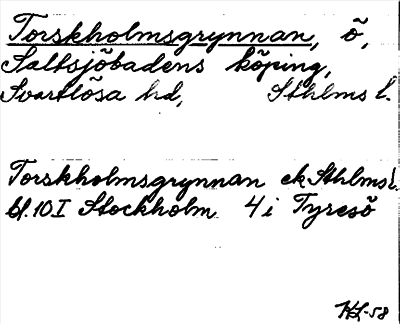 Torskholmsgrynnan, ö,
Saltsjöbadens köping,
Svartlösa hd, Sthlms l.
Torskholmsgrynnan ek Sthlms l.
bl. 10 I Stockholm 4 i Tyresö
HL-58